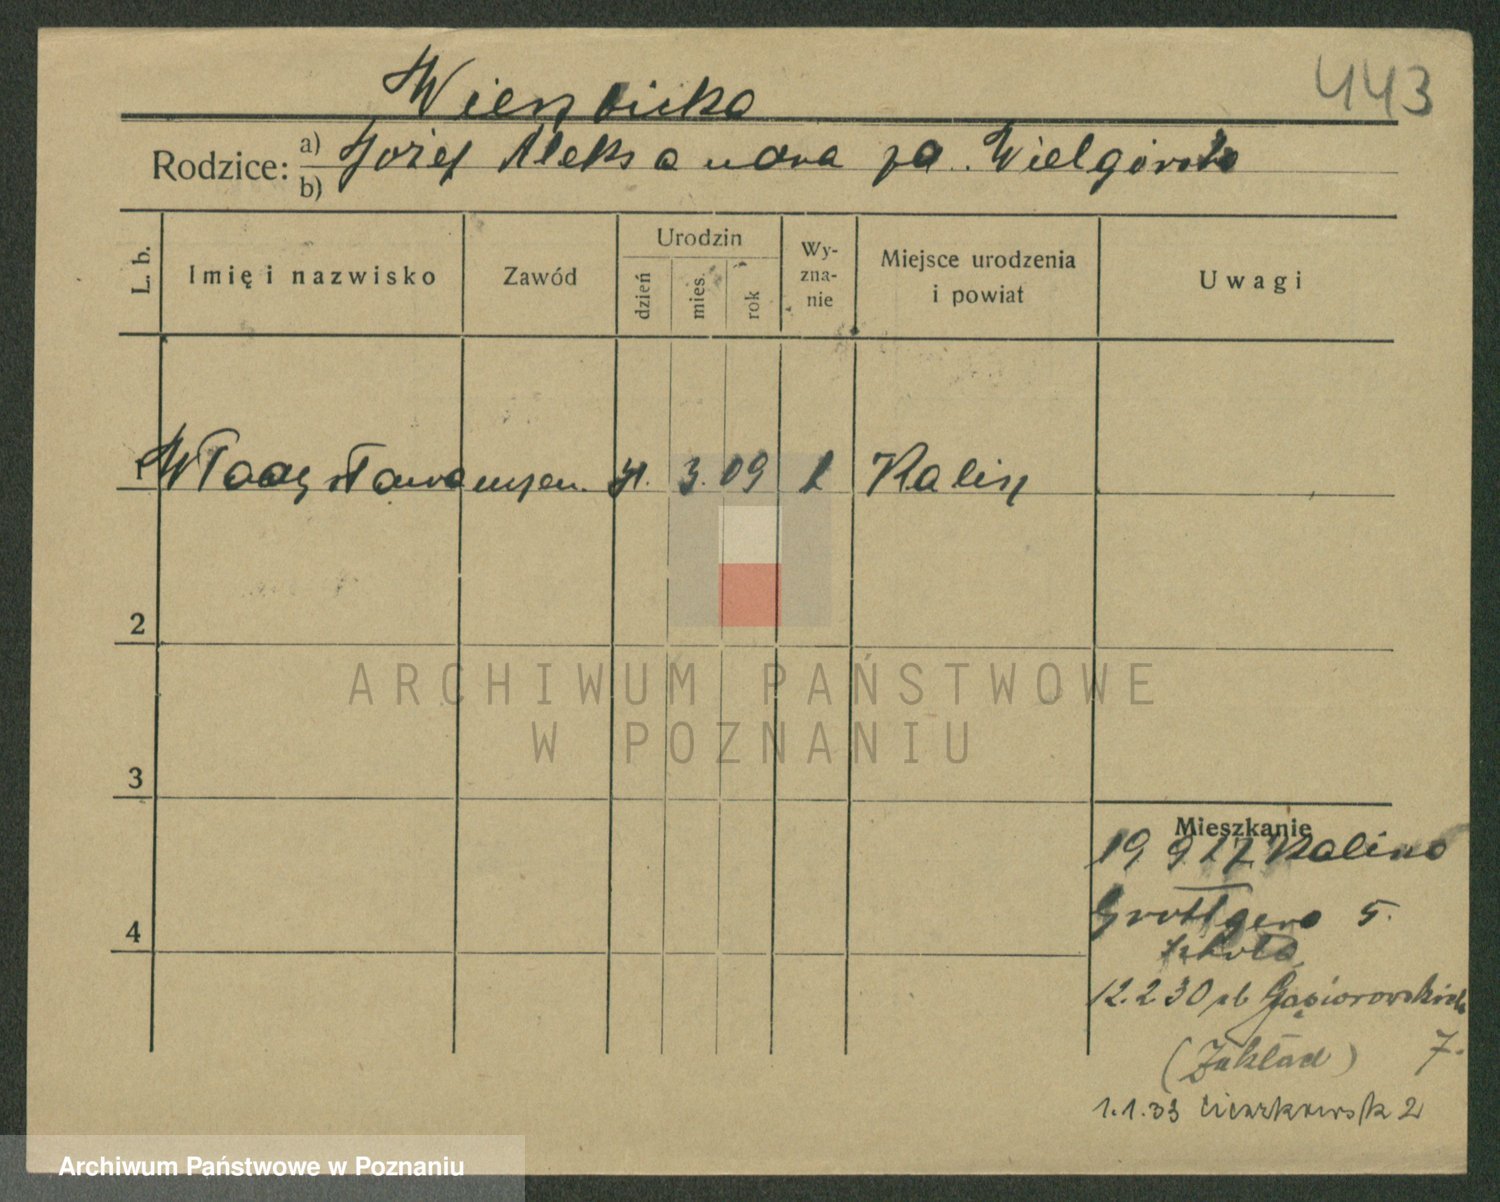 443
Wierzbicka
Rodzice: a) Józef Aleksandra za. Wielgórska
b)
L. b. Imię i nazwisko Zawód Urodzin dzień mies. rok Wy-zna-nie Miejsce urodzenia i powiat Uwagi
1 Władysława uczen. 31. 3. 09 Kalisz
2
ARCHIWUM PAŃSTWOWE
W POZNANIU
3
Mieszkanie
19 9 27 Kalisko
4 Grottgera 5.
szkoła
12.2 30 pl. Gąsiorowskich
(Zakład) 7.
1.1.33 2
Archiwum Państwowe w Poznaniu